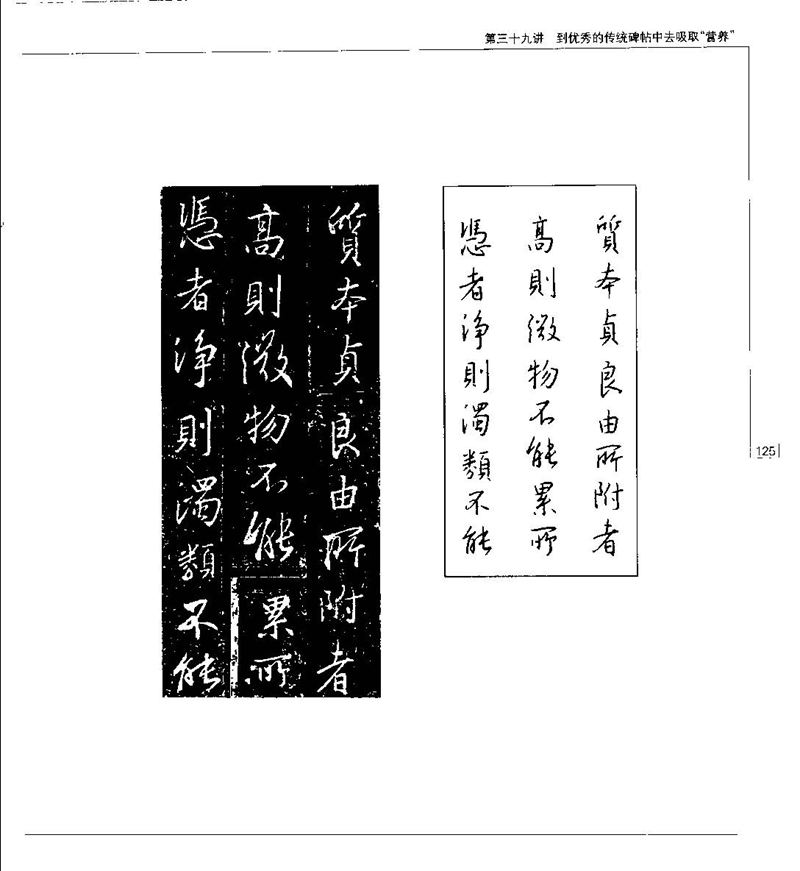 第三十九讲 到优秀的传统碑帖中去吸取“营养”
質本貞良由所附者
高則微物不能累所
憑者淨則濁類不能
質本貞良由所附者
高則微物不能累所
憑者淨則濁類不能
125